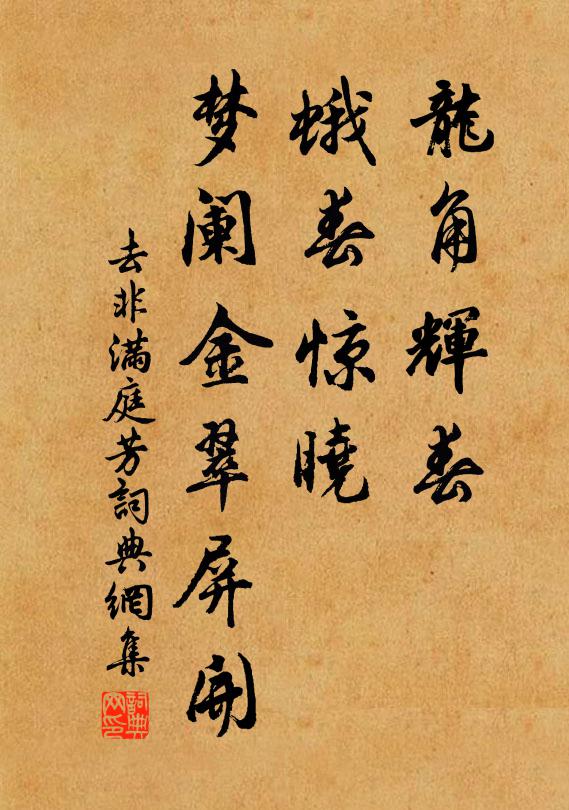 龍角輝春
蛾春惊曉
梦阑金翠屏開
去非滿庭芳詞典網集
詞典网印